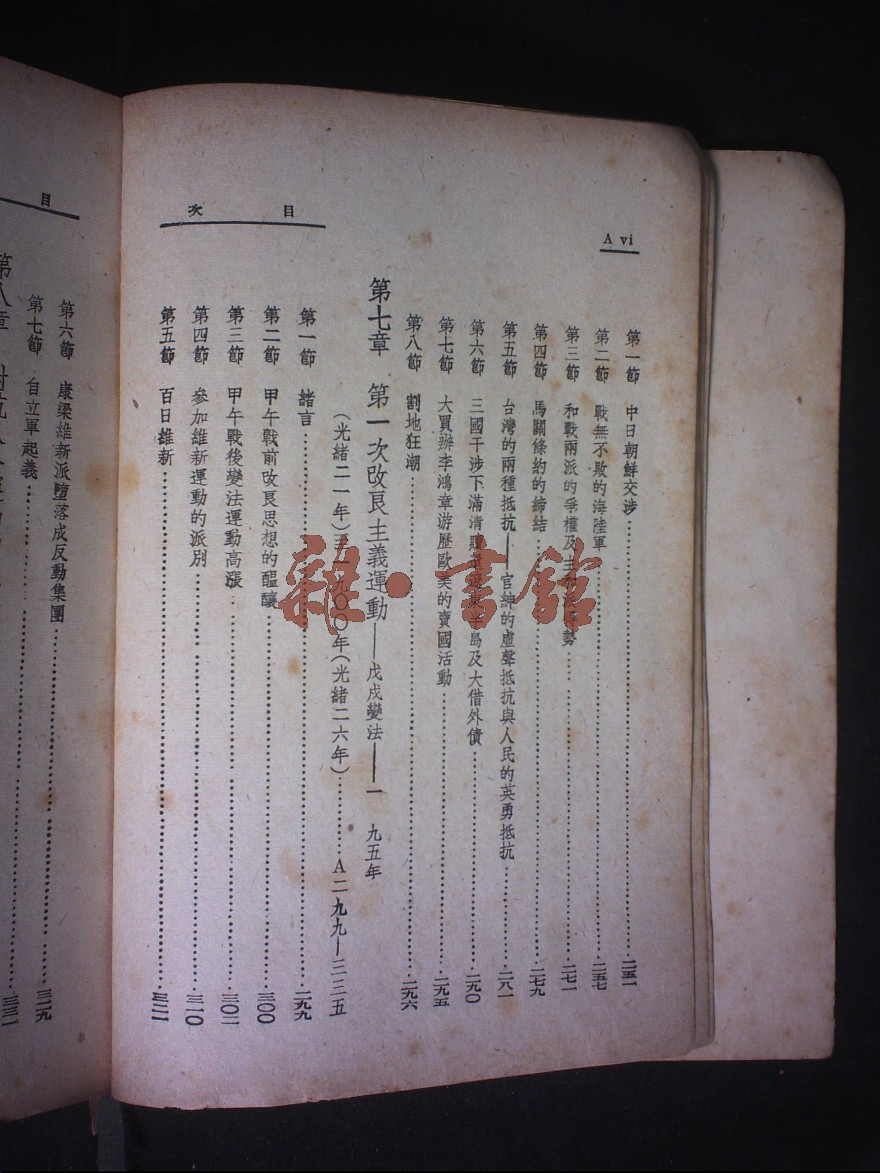 A vi
目次
第一節 中日朝鮮交涉…………二五一
第二節 戰無不敗的海陸軍…………二五七
第三節 和戰兩派的爭權及主和派得勢…………二七一
第四節 馬關條約的締結…………二七九
第五節 台灣的兩種抵抗——官紳的虛聲抵抗與人民的英勇抵抗…………二八一
第六節 三國干涉下滿清贖還遼東半島及大借外債…………二九〇
第七節 大買辦李鴻章游歷歐美的賣國活動…………二九五
第八節 割地狂潮…………二九六
第七章 第一次改良主義運動——戊戌變法——一 九五年
(光緒二一年)至一九〇〇年(光緒二六年)…………A二九九—三三五
第一節 諸言…………二九九
第二節 甲午戰前改良思想的醞釀…………三〇〇
第三節 甲午戰後變法運動高漲…………三〇二
第四節 參加維新運動的派別…………三一〇
第五節 百日維新…………三二一
目
第六節 康梁維新派墮落成反動集團…………三二九
第七節 自立軍起義…………三三一
第八章
雜·書館